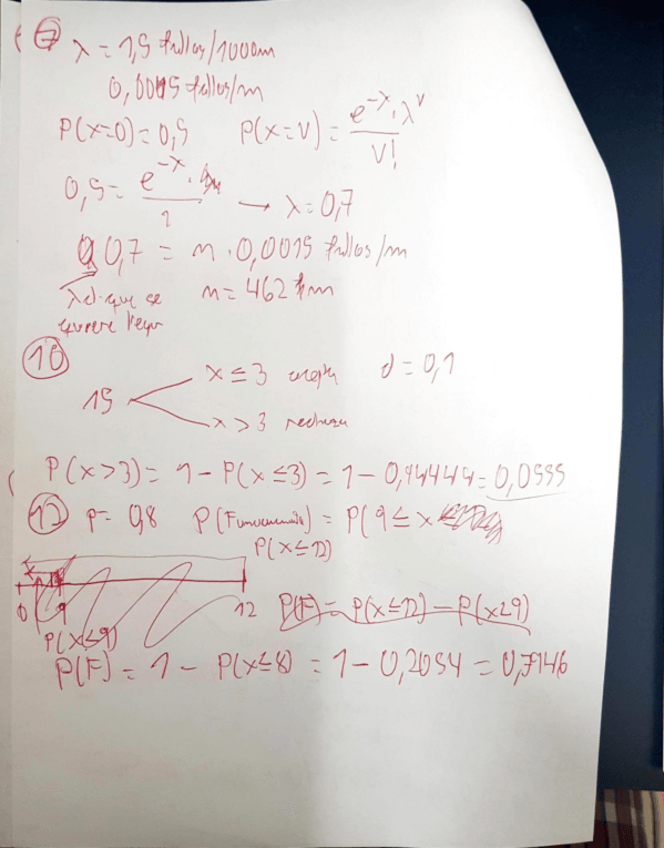 ⑦ λ = 1,5 fallos/1000m
0,0015 fallos/m
P(x=0) = 0,5 P(x=v) = e^-λ · λ^v / v!
0,5 = e^-λ / 1 → λ = 0,7
0,7 = m · 0,0015 fallos/m
λ del que se m = 462
quiere
⑩
x ≤ 3 acepta d = 0,1
15
x > 3 rechaza
P(x>3) = 1 - P(x≤3) = 1 - 0,94444 = 0,0555
P = 0,8 P(Funcionando) = P(9 ≤ x
P(x≤12)
0 9 12 P(F) = P(x≤12) - P(x≤9)
P(x≤9)
P(F) = 1 - P(x≤8) = 1 - 0,2054 = 0,7946